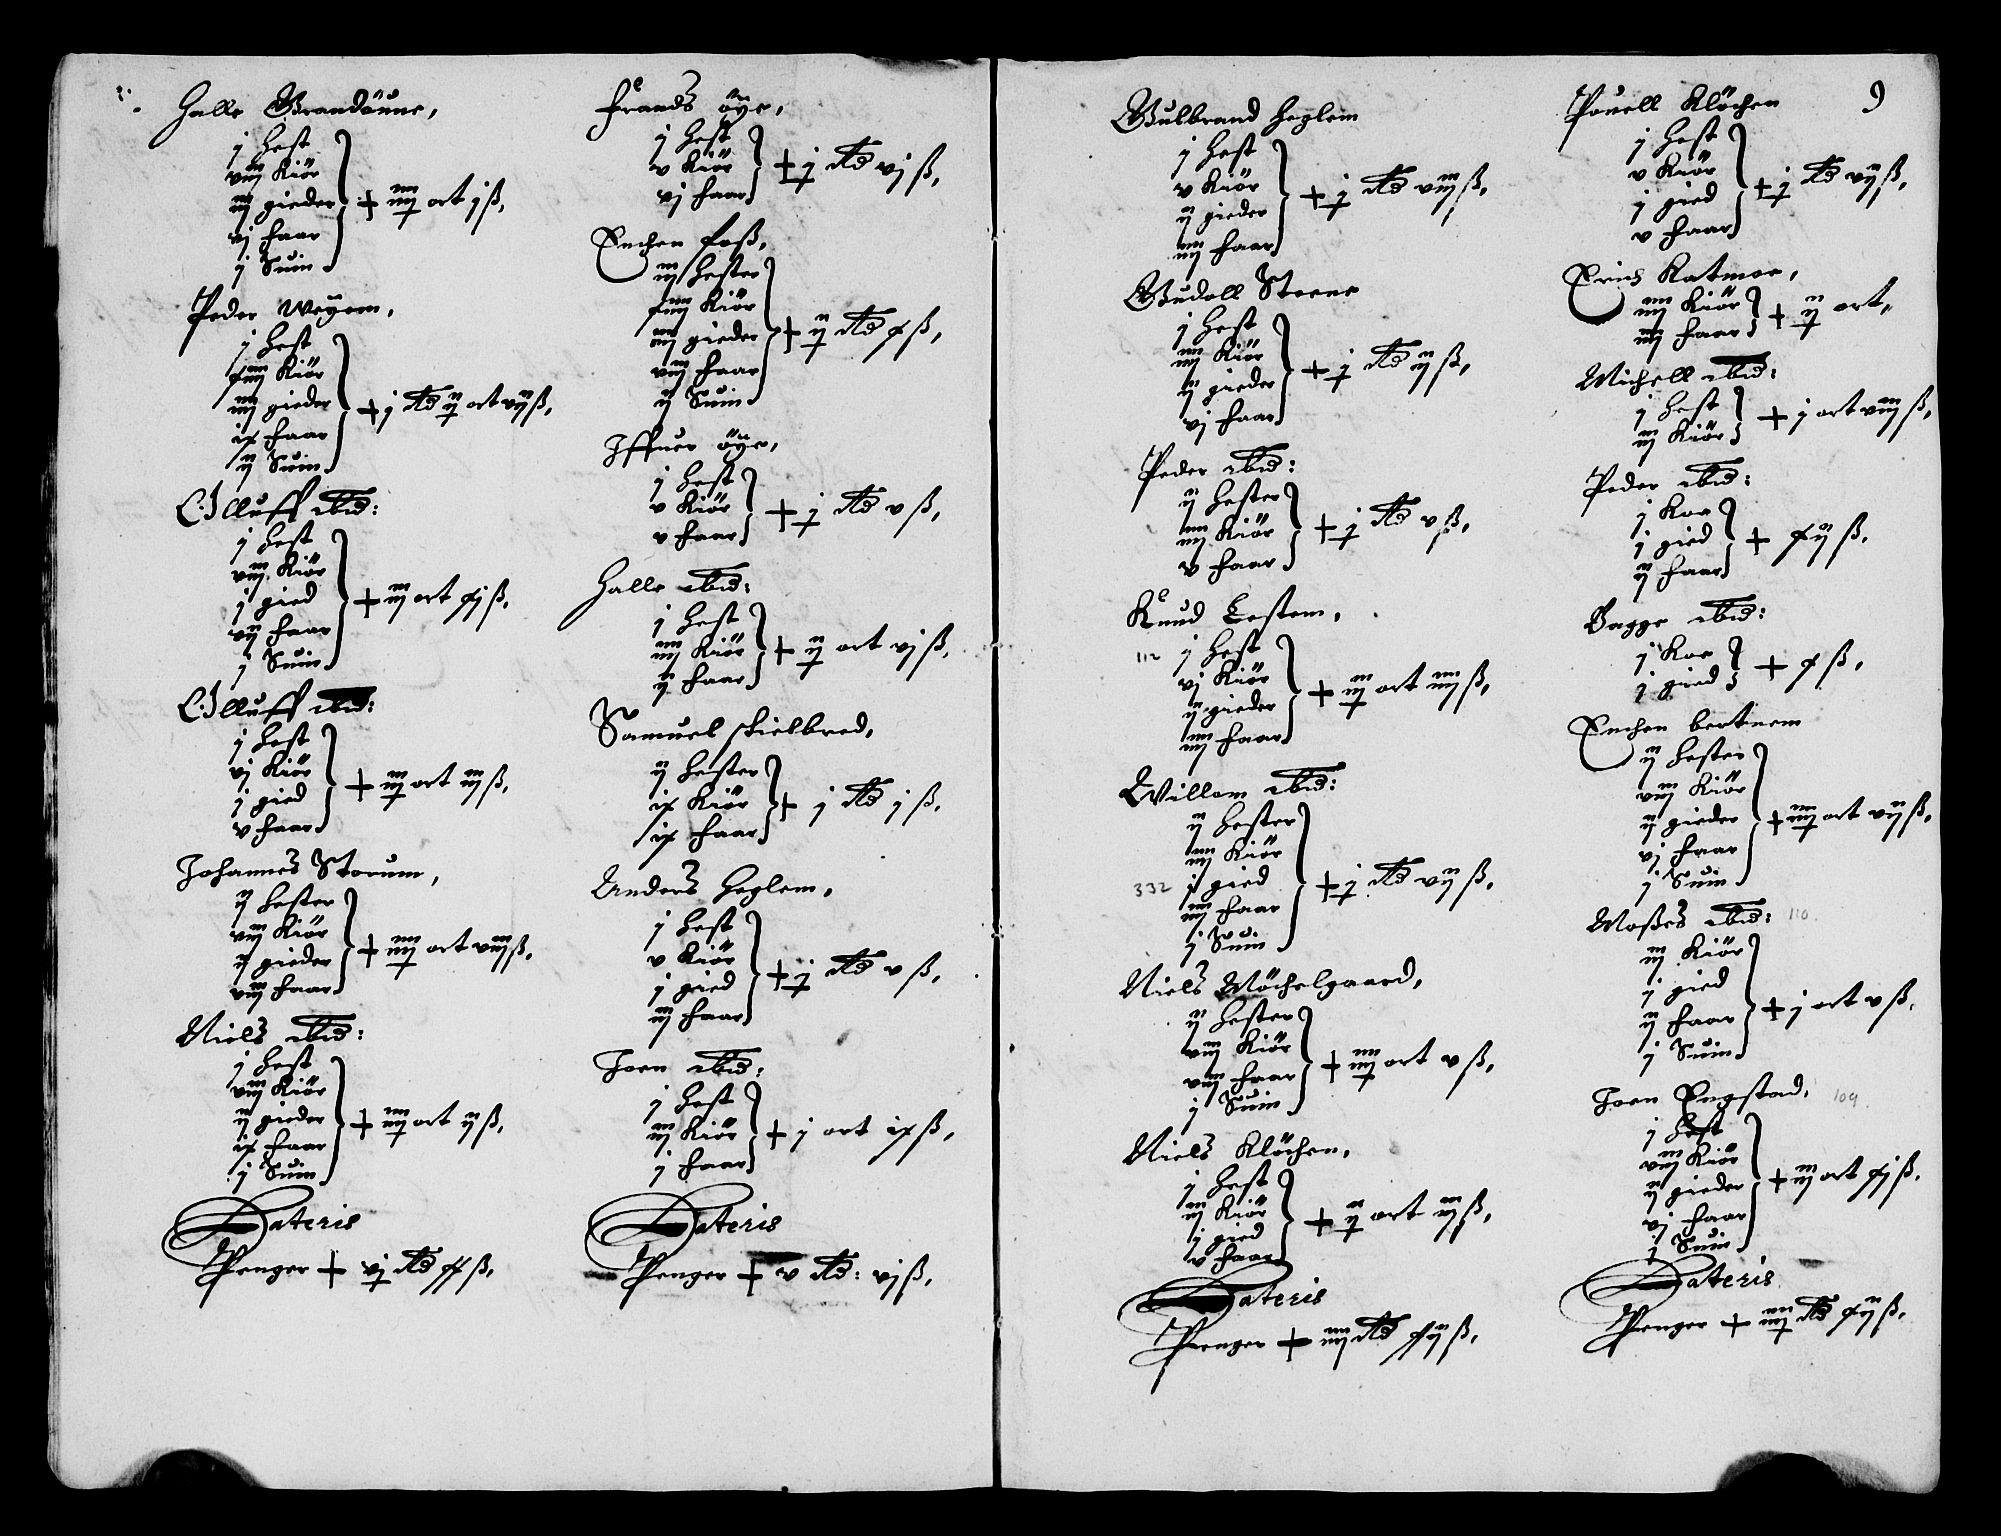 Halle Brandöune,
j hest
viij Kiör
iij gieder
vj faar
j Suin
+ iiij ort j ß,
Peder Weyem,
j hest
xiiij Kiör
iiij gieder
ix faar
ij Suin
+ j rd ij ort vij ß,
Olluff ibid:
j hest
viij Kiör
j gied
vij faar
j Suin
+ iij ort xj ß,
Olluff ibid:
j hest
vj Kiör
j gied
v faar
+ iij ort iij ß,
Johannes Storum,
ij hester
viij Kiör
ij gieder
viij faar
+ iiij ort viij ß,
Niels ibid:
j hest
viij Kiör
ij gieder
ix faar
j Suin
+ iiij ort ij ß,
Lateris
Penger + vj rd xx ß,
frands öye,
j hest
v Kiör
vj faar
+ j rd vj ß,
Enchen foß,
iij hester
xiiij Kiör
iij gieder
viij faar
ij Suin
+ ij rd x ß,
Iffuer öye,
j hest
v Kiör
v faar
+ j rd v ß,
Halle ibid:
j hest
iiij Kiör
ij faar
+ ij ort vj ß,
Samuel skielbred,
ij hester
ix Kiör
ix faar
+ j rd j ß,
Anders Heglem,
j hest
v Kiör
j gied
iij faar
+ j rd v ß,
Joen ibid:
j hest
iij Kiör
j faar
+ j ort ix ß,
Lateris
Penger + v rd: vj ß,
Gulbrand Heglem
j hest
v Kiör
ij gieder
iiij faar
+ j rd viij ß,
Gudoll Steene
j hest
iiij Kiör
ij gieder
vj faar
+ j rd ij ß,
Peder ibid:
ij hester
iiij Kiör
v faar
+ j rd v ß,
Knud Lestem,
112
j hest
vj Kiör
ij gieder
iiij faar
+ iij ort iiij ß,
Willom ibid:
ij hester
iiij Kiör
332
j gied
iiij faar
j Suin
+ j rd vij ß,
Niels Möchelgaard,
ij hester
viij Kiör
viij faar
j Suin
+ iiij ort v ß,
Niels Klöchen,
j hest
iij Kiör
j gied
v faar
+ ij ort iij ß,
Lateris
Penger + iiij rd xxij ß,
9
Pouell Klöchen
j hest
v Kiör
j gied
v faar
+ j rd vij ß,
Erich Katmoe,
iiij Kiör
iij faar
+ ij ort,
Michell ibid:
j hest
iij Kiör
+ j ort viij ß,
Peder ibid:
j Koe
j gied
ij faar
+ xij ß,
Bagge ibid:
j Koe
j gied
+ x ß,
Enchen bertnem
ij hester
viij Kiör
ij gieder
vj faar
j Suin
+ iiij ort vij ß,
Moßes ibid: 110
iij Kiör
j gied
ij faar
j Suin
+ j ort v ß,
Joen Engstad, 109
j hest
viij Kiör
ij gieder
vj faar
j Suin
+ iij ort xj ß,
Lateris
Penger + iiij rd xij ß,